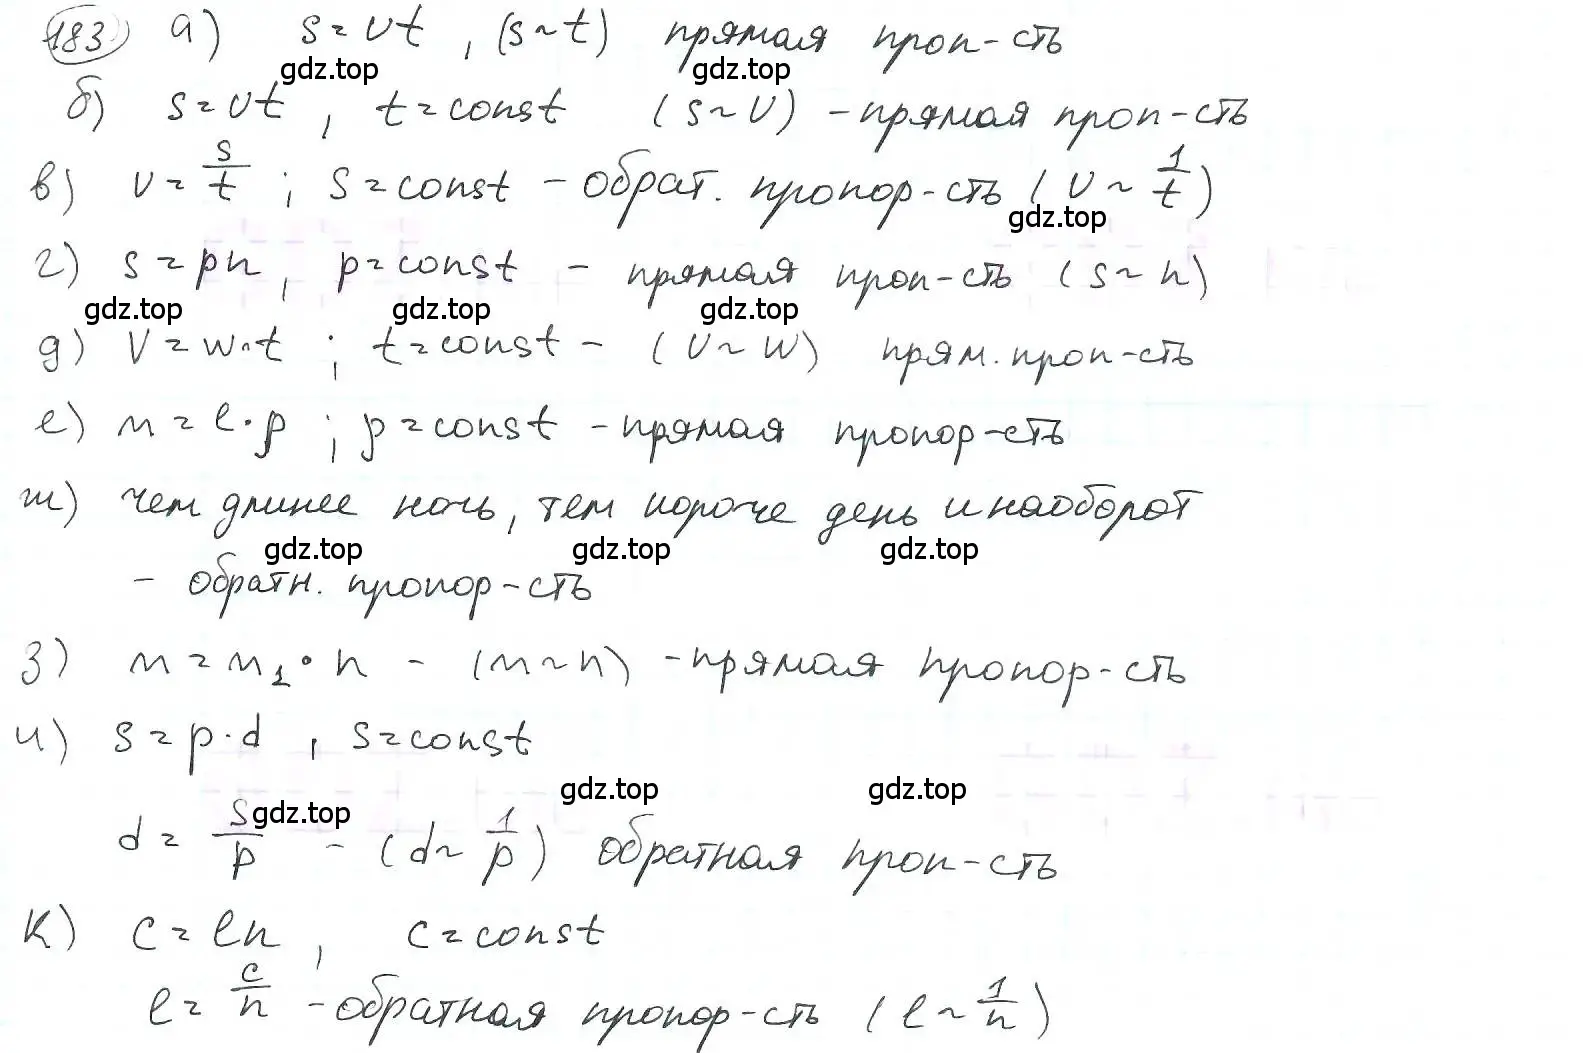 183) а) s = vt , (s ~ t) прямая проп-сть
gdz.top gdz.top
б) s = vt , t = const (s ~ v) - прямая проп-сть
в) v = s/t ; s = const - обрат. пропор-сть ( v ~ 1/t )
gdz.top
г) s = pn , p = const - прямая проп-сть ( s ~ n )
gdz.top gdz.top gdz.top
д) V = w·t ; t = const - ( v ~ w ) прям. проп-сть
е) m = l · p ; p = const - прямая пропор-сть
ж) чем длинее ночь, тем короче день и наоборот
gdz.top gdz.top gdz.top
- обратн. пропор-сть
з) m = m₁ · n - (m ~ n) - прямая пропор-сть
и) s = p · d , s = const
gdz.top gdz.top
d = s/p - ( d ~ 1/p ) обратная проп-сть
gdz.top
к) c = ln , c = const
l = c/n - обратная пропор-сть ( l ~ 1/n )